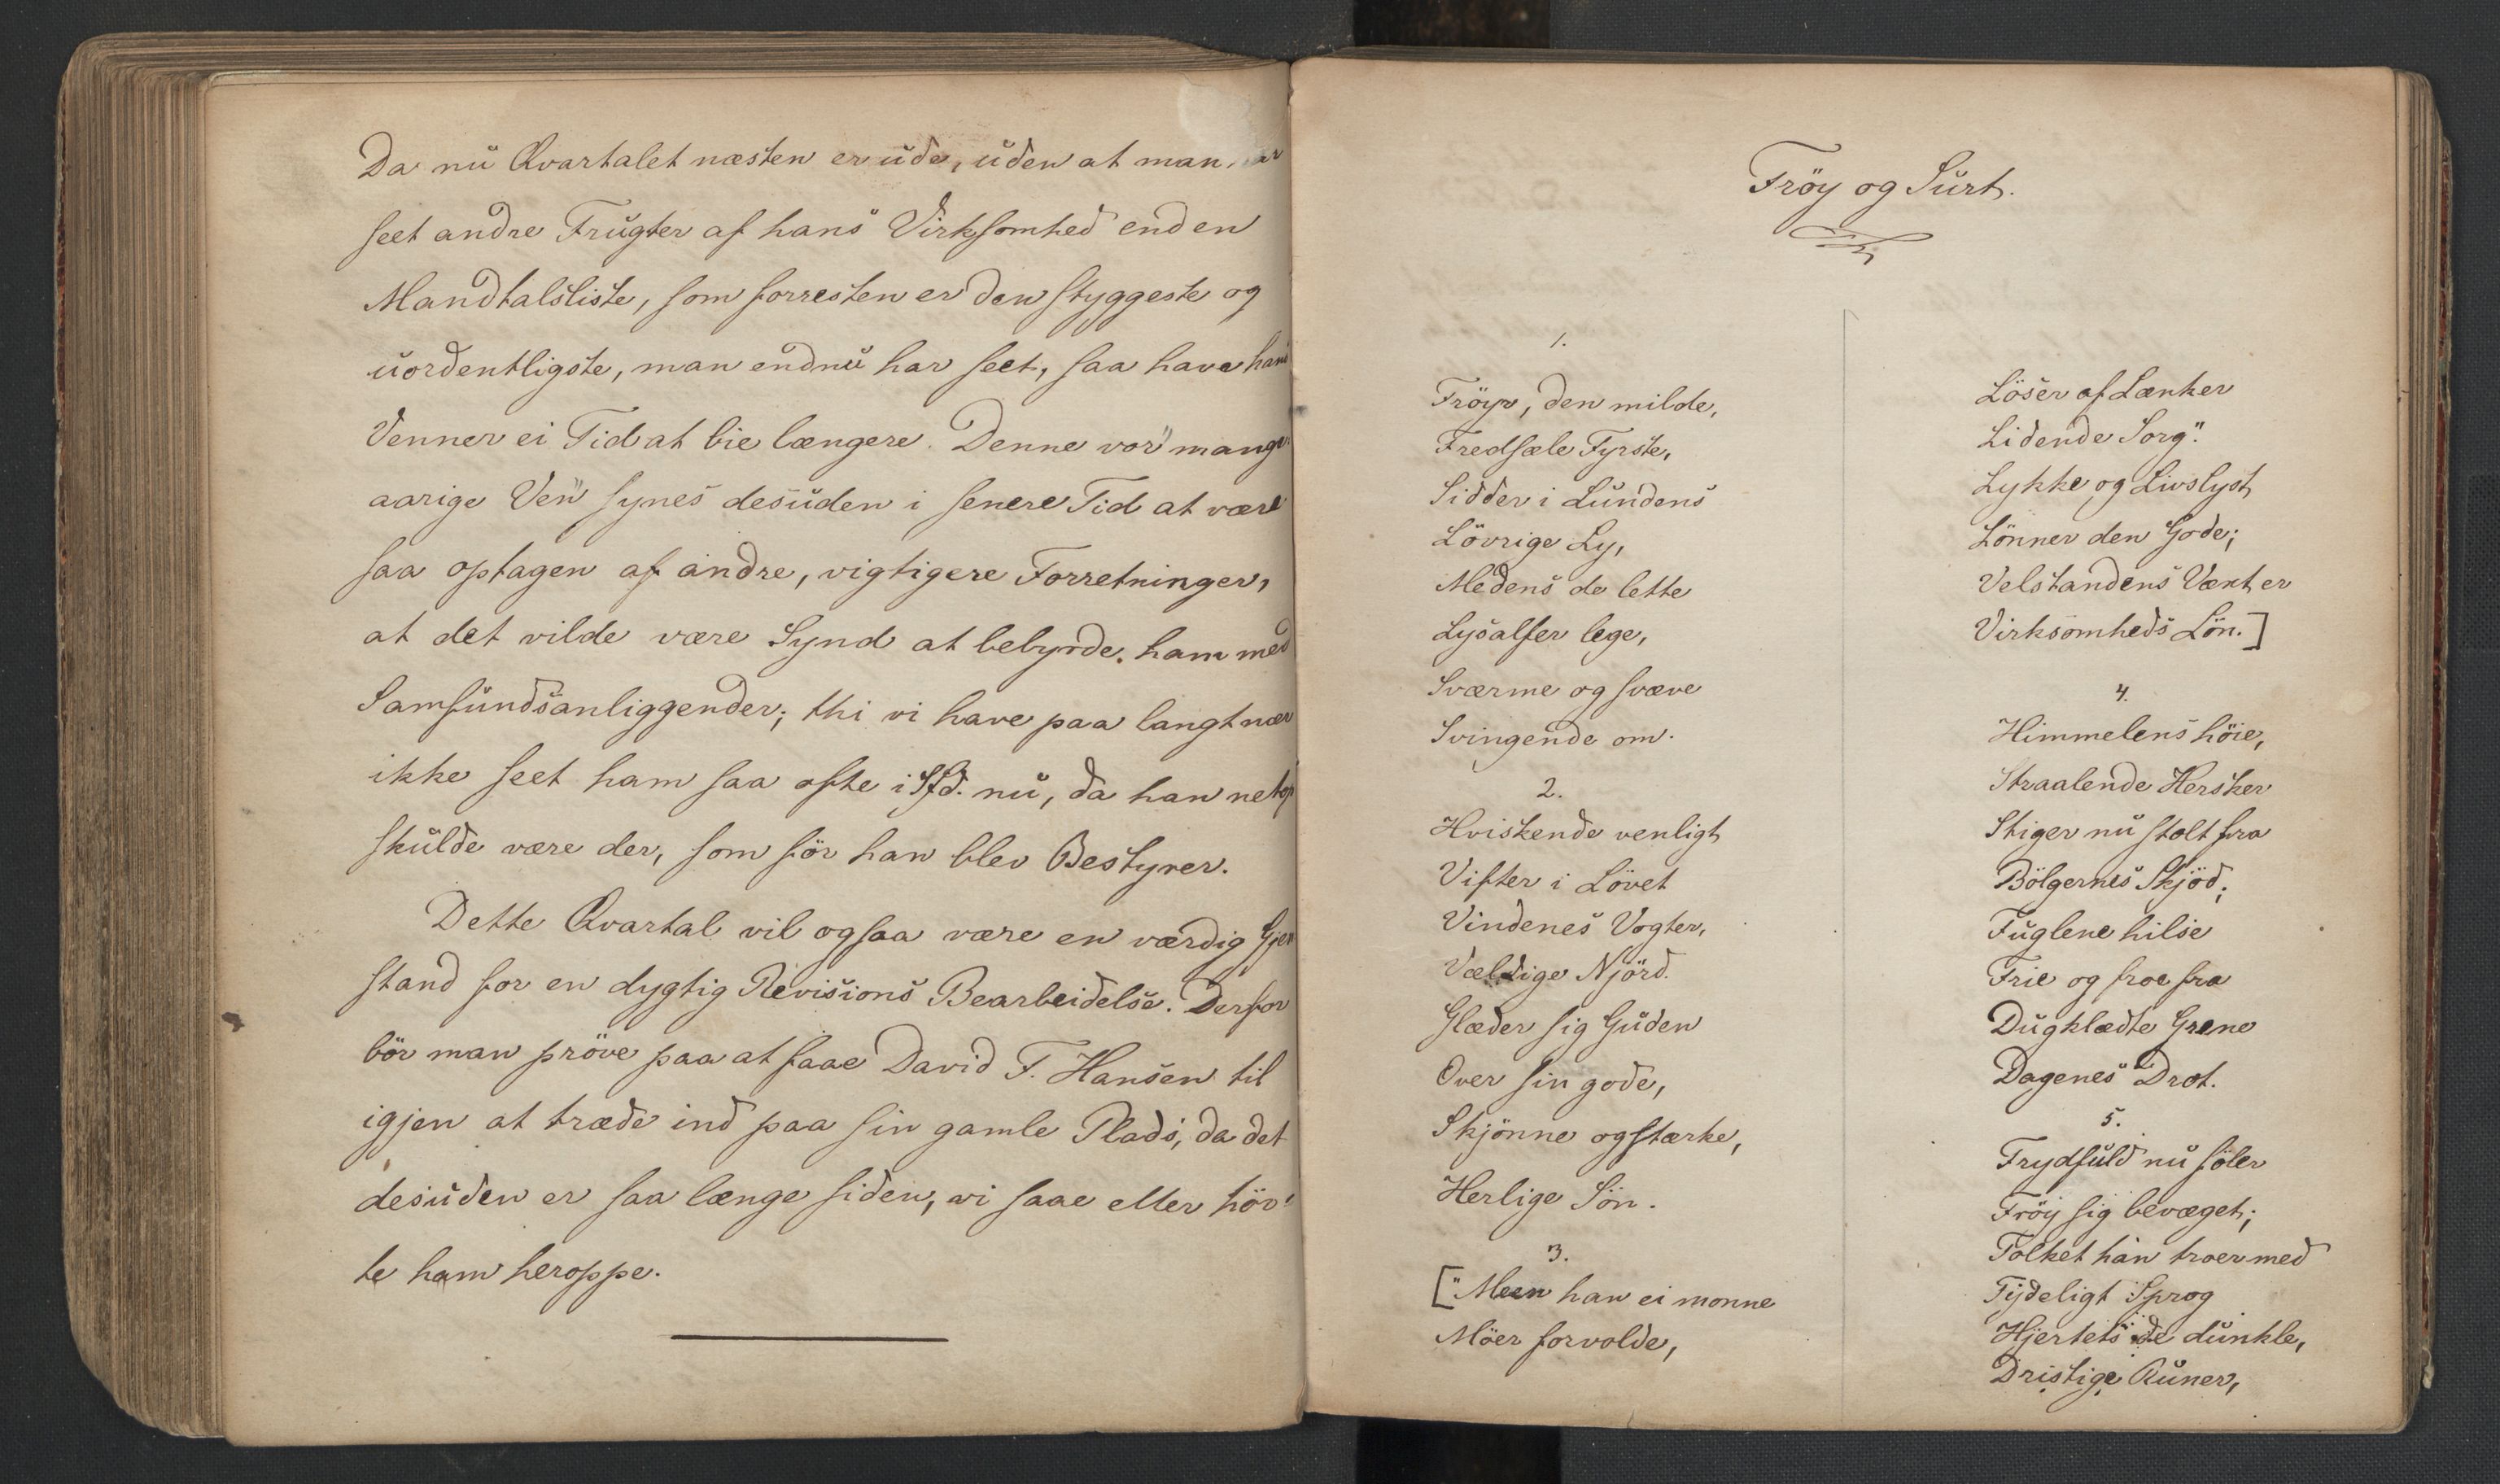 Da nu Qvartalet næsten er ude, uden at man har
seet andre Frugter af hans Virksomhed end en
Mandtalsliste, som forresten er den styggeste og
uordentligste, man endnu har seet, saa have hans
Venner ei Tid at bie længere. Denne vor "mange
aarige Ven" synes desuden i senere Tid at være
saa optagen af andre, vigtigere Forretninger,
at det vilde være Synd at bebyrde ham med
Samfundsanliggender; thi vi have paa langt nær
ikke seet ham saa ofte i Sfd. nu, da han netop
skulde være der, som för han blev Bestyrer.
Dette Qvartal vil ogsaa være en værdig Gjen
stand for en dygtig Revisions Bearbeidelse. Derfor
bör man pröve paa at faae David F. Hansen til
igjen at træde ind paa sin gamle Plads, da det
desuden er saa længe siden, vi saae eller hör-
te ham heroppe.
Fröy og Surt.
1.
Fröyr, den milde,
Fredsæle Fyrste,
Sidder i Lundens
Lövrige Ly,
Medens de lette
Lysalfer lege,
Sværme og svæve
Svingende om.
2.
Hviskende venligt
Vifter i Lövet
Vindenes Vogter,
Vældige Njörd.
Glæder sig Guden
Over sin gode,
Skjönne og stærke,
Herlige Sön.
3.
["Meen han ei monne
Möer forvolde,
Löser af Lænker
Lidende Sorg".
Lykke og Livslyst
Lönner den Gode;
Velstandens Væxt er
Virksomheds Lön.]
4.
Himmelens höie,
Straalende Hersker
Stiger nu stolt fra
Bölgernes Skjöd;
Fuglene hilse
Frie og froe fra
Dugklædte Grene
Dagenes Drot.
5.
Frydfuld nu föler
Fröy sig bevæget;
Tolket han troer med
Tydeligt Sprog
Hjertets de dunkle,
Dristige Runer,